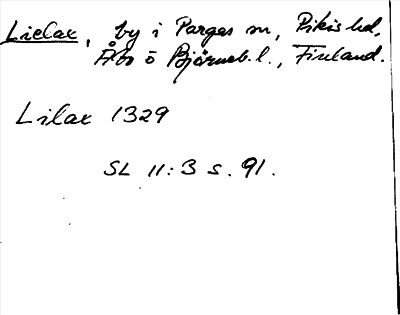 Lielax, by i Pargas sn, Pikis hd,
Åbo o Björneb. l., Finland.
Lilax 1329
SL 11:3 s. 91.